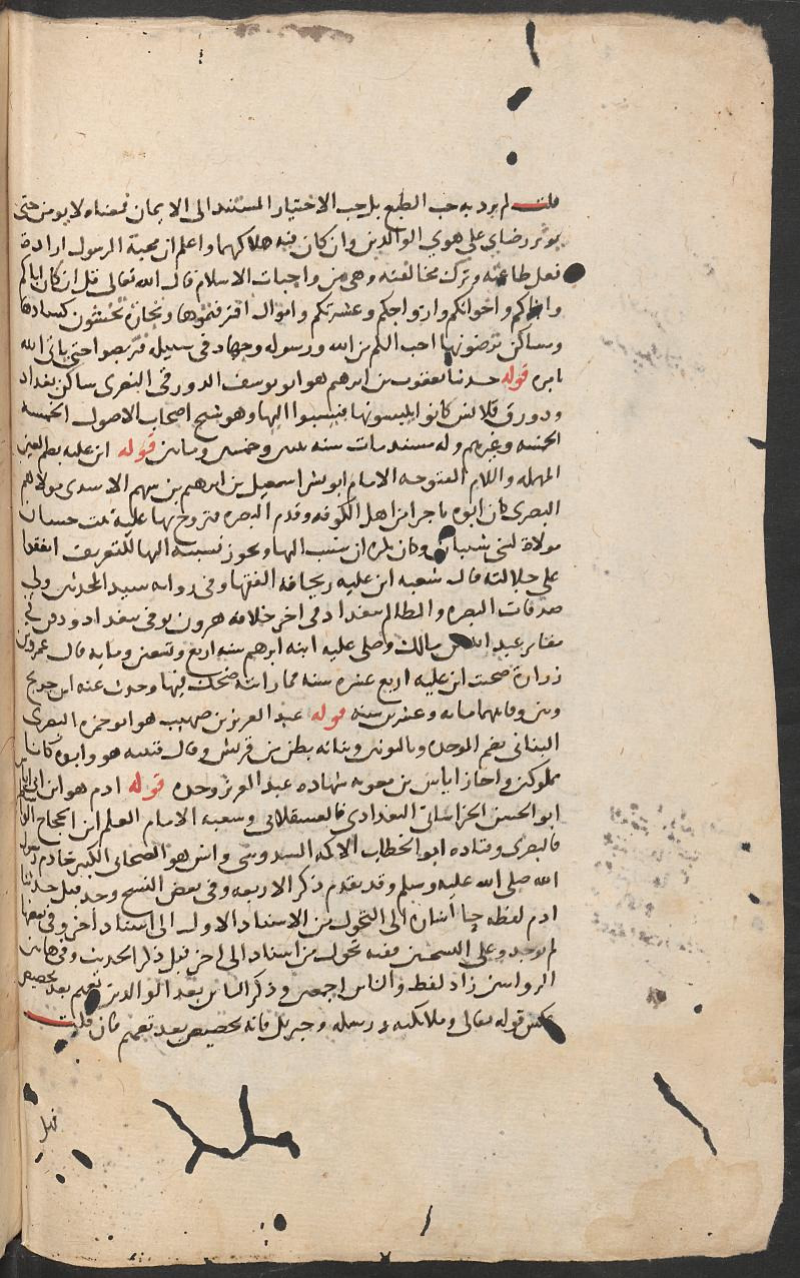 قلت لم يرد به حب الطبع بل حب الاختيار المستند الى الايمان فمعناه لا يومن حتى
يوثر رضاي على هوي الوالدين وان كان فيه هلاكهما واعلم ان محبة الرسول ارادة
فعل طاعته وترك مخالفته وهي من واجبات الاسلام قال الله تعالى قل ان كان اباكم
وابناكم واخوانكم وازواجكم وعشيرتكم واموال اقترفتموها وتجارة تخشون كسادها
ومساكن ترضونها احب اليكم من الله ورسوله وجهاد في سبيله فتربصوا حتى ياتي الله
بامره قوله حدثنا يعقوب بن ابرهيم هو ابو يوسف الدورقي البصري ساكن بغداد
ودورق قلانس كانوا يلبسونها فينسبوا اليها وهو شيخ اصحاب الاصول الخمسة
الخمسه وغيرهم وله مسند مات سنه وخمسين ومايتين قوله ابن عليه بضم العين
المهمله واللام المفتوحه الامام ابو بشر اسمعيل بن ابرهيم بن سهم الاسدي مولاهم
البصري كان ابوه تاجرا من اهل الكوفه وقدم البصره فتزوج بها علية بنت حسان
مولاة لبني شيبان وكان يكره ان ينسب اليها ويجوز نسبته اليها للتعريف اتفقوا
على جلالته قال شعبه ابن عليه ريحانة الفقها وفي روايه سيد المحدثين ولي
صدقات البصره والمظالم ببغداد في اخر خلافه هرون توفي ببغداد ودفن في
مقابر عبد الله بن مالك وصلى عليه ابنه ابرهيم سنه اربع وتسعين ومايه قال عمرو بن
زرارة صحبت ابن عليه اربع عشره سنه فما رايته ضحك فيها وحدث عنه ابن جريج
وبين وفاتيهما مايه وعشرين سنه قوله عبد العزيز بن صهيب هو ابو حمزه البصري
البناني بضم الموحده وبالنون وبنانه بطن من قريش وقال قتيبه هو وابوه كانا
مملوكين واجاز اياس بن معويه شهاده عبد العزيز وحده قوله ادم هو ابن ابي اياس
ابو الحسن الخراساني البغدادي فالعسقلاني وشعبه الامام العلم ابن الحجاج
فالبصري وقتاده ابو الخطاب الاكمه السدوسي وانس هو الصحابي الكبير خادم رسول
الله صلى الله عليه وسلم وقد تقدم ذكر الاربعه وفي بعض النسخ وجد قبل حدثنا
ادم لفظه ح اشارة الى التحول من الاسناد الاول الى اسناد اخر وفي بعضها
لم توجد وعلى النسختين ففيه تحول من اسناد الى اخر قبل ذكر الحديث وفي هاتين
الروايتين زاد لفظ والناس اجمعين وذكر الناس بعد الوالدين تعميم بعد تخصيص
عكس قوله تعالى وملائكته ورسله وجبريل فانه تخصيص بعد تعميم فان قلت